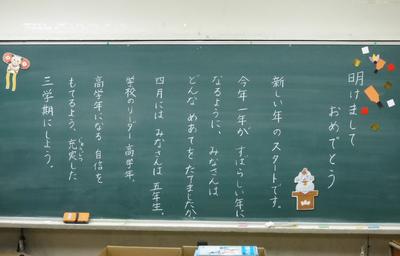 明けまして
おめでとう
新しい年のスタートです。
今年一年が すばらしい年に
なるように、みなさんは
どんな めあてを たてましたか。
四月には みなさんは 五年生。
学校のリーダー 高学年。
高学年になる 自信を
もてるよう、充実した
じゅうじつ
三学期にしよう。